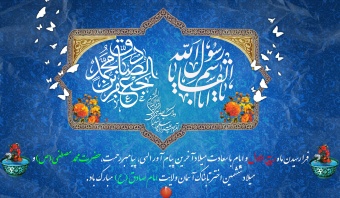 یا اباالقاسم یا رسول الله
جعفر بن محمد الصادق
فرارسیدن ماه ربیع الاول و امام باسعادت میلاد آخرین پیام آور الهی، پیامبر رحمت، حضرت محمد مصطفی (ص) و
میلاد ششمین اختر تابناک آسمان ولایت امام صادق (ع) مبارک باد.